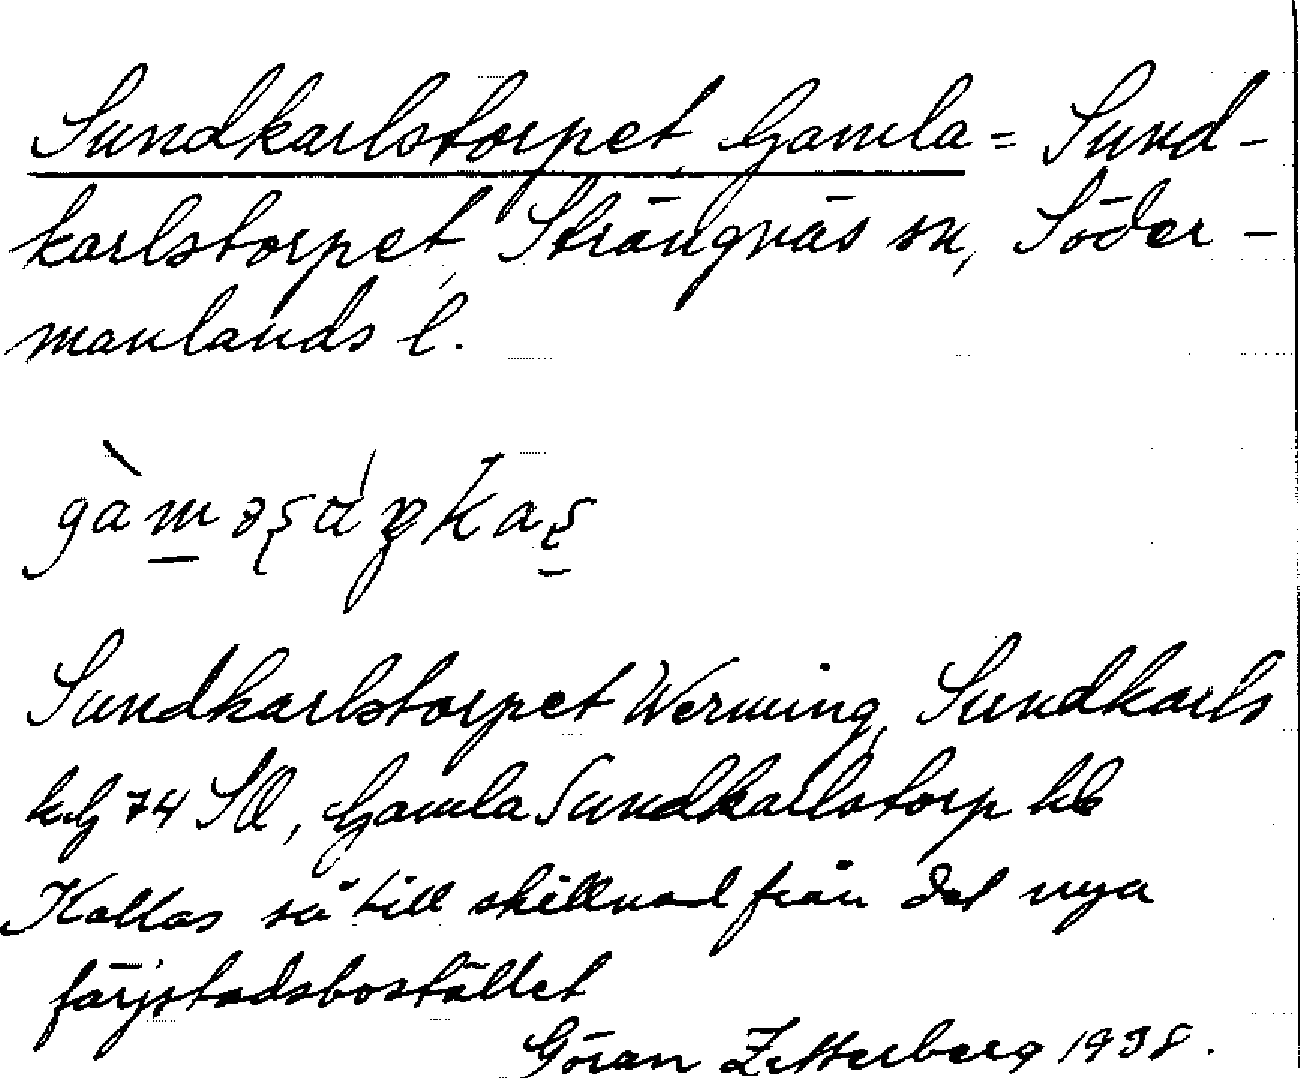 Sundkarlstorpet, Gamla = Sund-
karlstorpet, Strängnäs sn, Söder-
manlands l.
Sundkarlstorpet Werming, Sundkarls
74 Gamla Sundkarlstorp hb
Kallas så till skillnad från det nya
färjstadsbostället
Göran Zetterberg 1938.